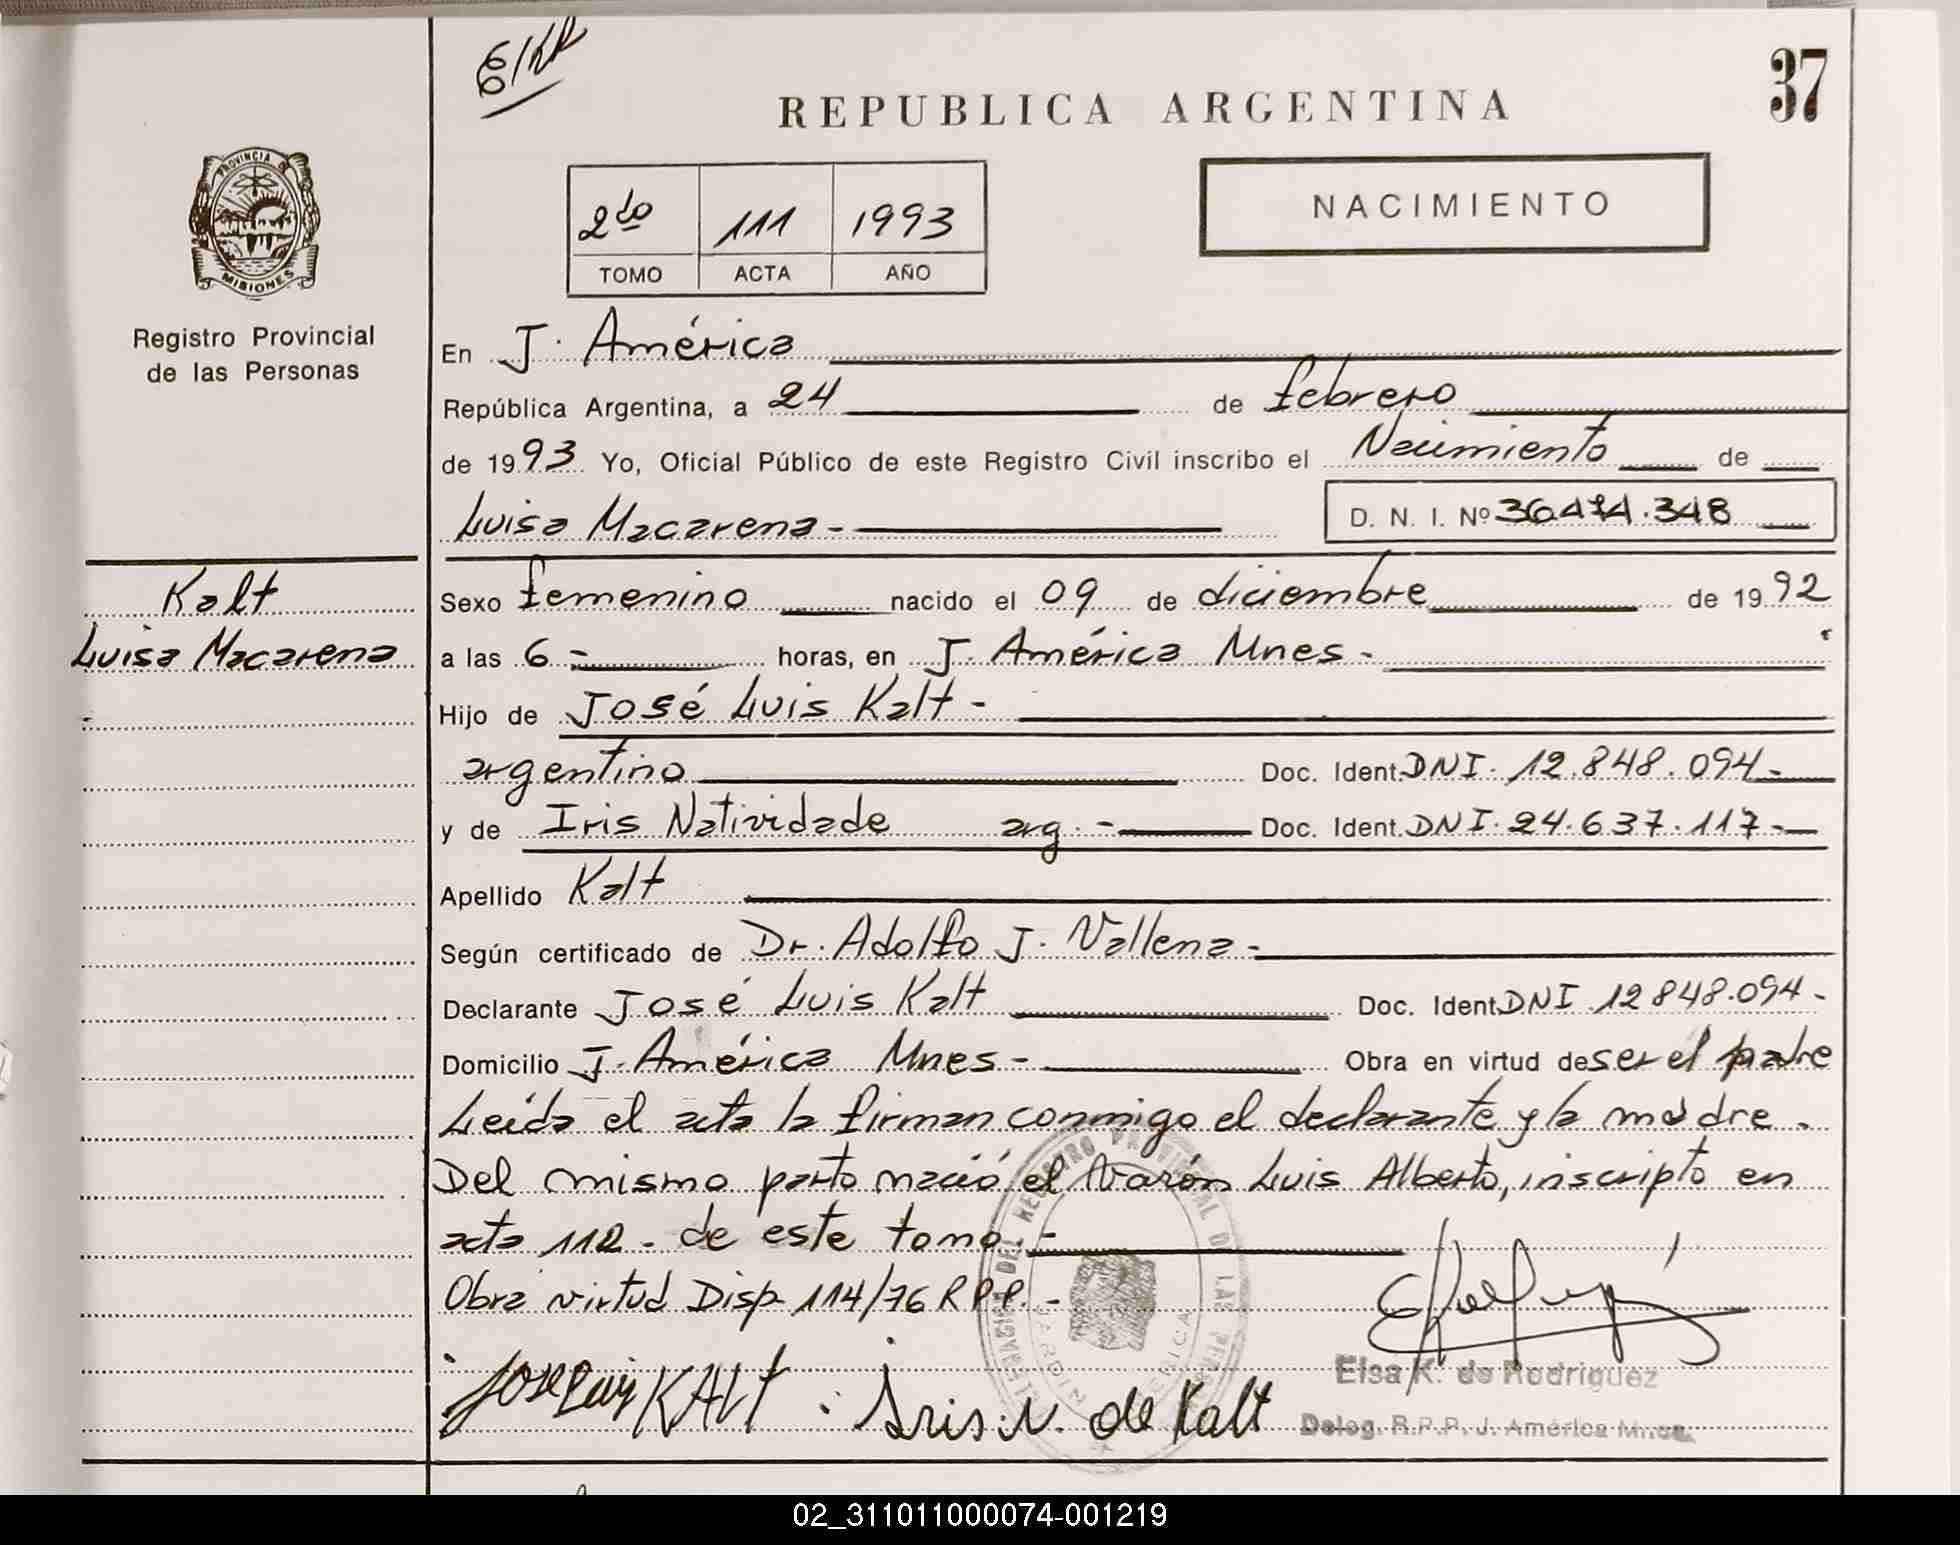 37
REPUBLICA ARGENTINA
PROVINCIA DE
MISIONES
2do 111 1993
TOMO ACTA AÑO
NACIMIENTO
Registro Provincial
de las Personas
En J. América
República Argentina, a 24 de febrero
de 1993 Yo, Oficial Público de este Registro Civil inscribo el Nacimiento de
Luisa Macarena - D. N. I. Nº
Kalt
Luisa Macarena
Sexo femenino nacido el 09 de diciembre de 1992
a las 6 - horas, en J. América Mnes -
Hijo de José Luis Kalt -
argentino Doc. Ident. DNI. 12.848.094 -
y de Iris Natividade arg. - Doc. Ident. DNI. 24.637.117 -
Apellido Kalt
Según certificado de Dr. Adolfo J. Vallena -
Declarante José Luis Kalt Doc. Ident. DNI 12848.094 -
Domicilio J. América Mnes - Obra en virtud de ser el padre
Leída el acta la firman conmigo el declarante y la madre.
Del mismo parto nació el varón Luis Alberto, inscripto en
acta 112 - de este tomo. -
Obra virtud Disp. 114/76 R.P.P. -
DELEGACION DEL REGISTRO PROVINCIAL DE LAS PERSONAS
JARDIN AMERICA
Jose Luis KALT Iris. N. de Kalt
Elsa K. de Rodriguez
Deleg. R.P.P. J. América Mnes.
02_311011000074-001219